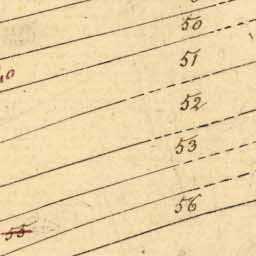 50
51
52
53
56
55